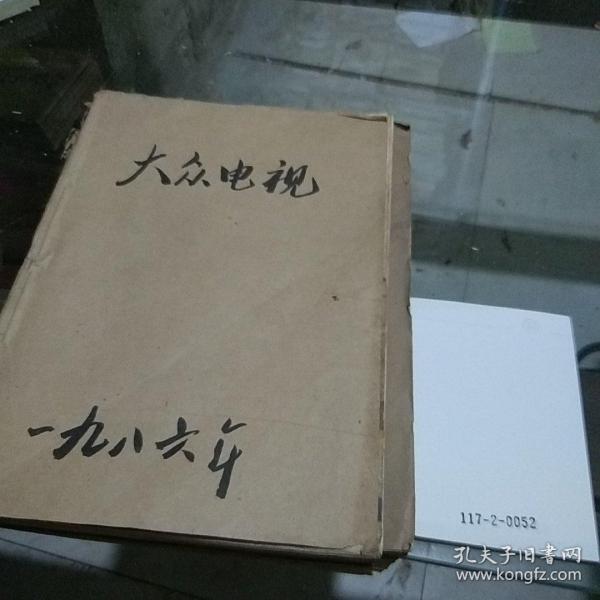 大众电视
一九八六年
117-2-0052
孔夫子旧书网
www.kongfz.com